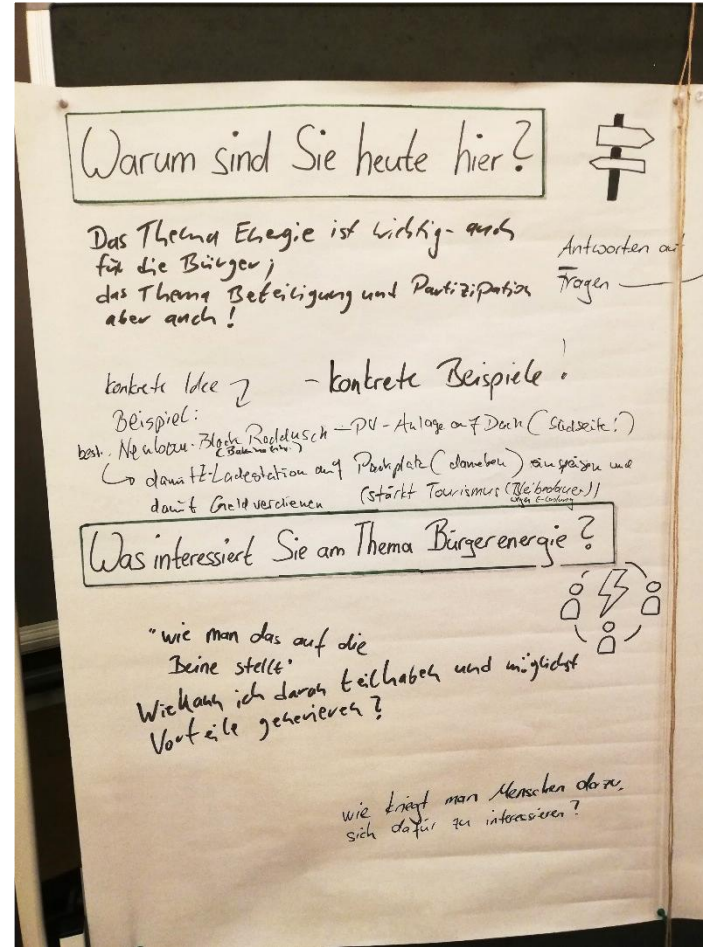 Warum sind Sie heute hier?
Das Thema Energie ist wichtig - auch
für die Bürger;
das Thema Beteiligung und Partizipation
aber auch!
Antworten auf
Fragen
konkrete Idee
- konkrete Beispiele!
Beispiel:
best. Neubau-Block Raddusch - PV-Anlage auf Dach (Südseite!)
damit E-Ladestation auf Parkplatz (daneben) einspeisen und
damit Geld verdienen (stärkt Tourismus
Was interessiert Sie am Thema Bürgerenergie?
"wie man das auf die
Beine stellt"
Wie kann ich daran teilhaben und möglichst
Vorteile generieren?
wie kriegt man Menschen dazu,
sich dafür zu interessieren?